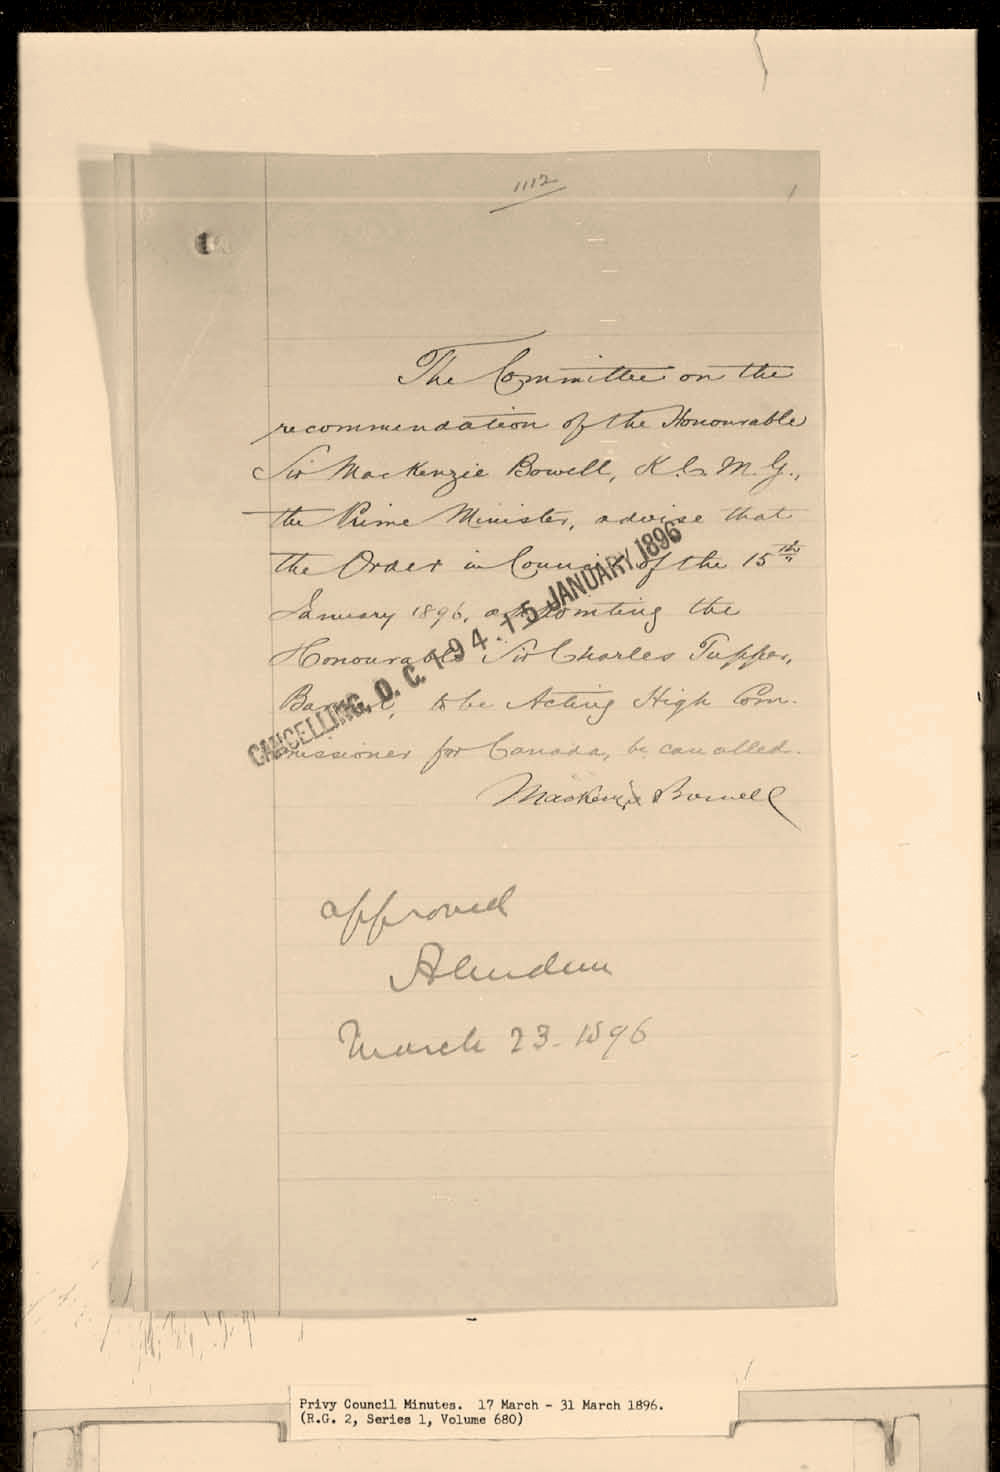 1112
1
The Committee on the
recommendation of the Honourable
Sir MacKenzie Bowell, K.C.M.G.,
the Prime Minister, advise that
the Order in Council of the 15th
January 1896, appointing the
Honourable Sir Charles Tupper,
Baronet, to be Acting High Com-
missioner for Canada, be cancelled.
MacKenzie Bowell
CANCELLING, O. C. 194 - 15 JANUARY 1896
approved
Aberdeen
March 23. 1896
Privy Council Minutes. 17 March - 31 March 1896.
(R.G. 2, Series 1, Volume 680)